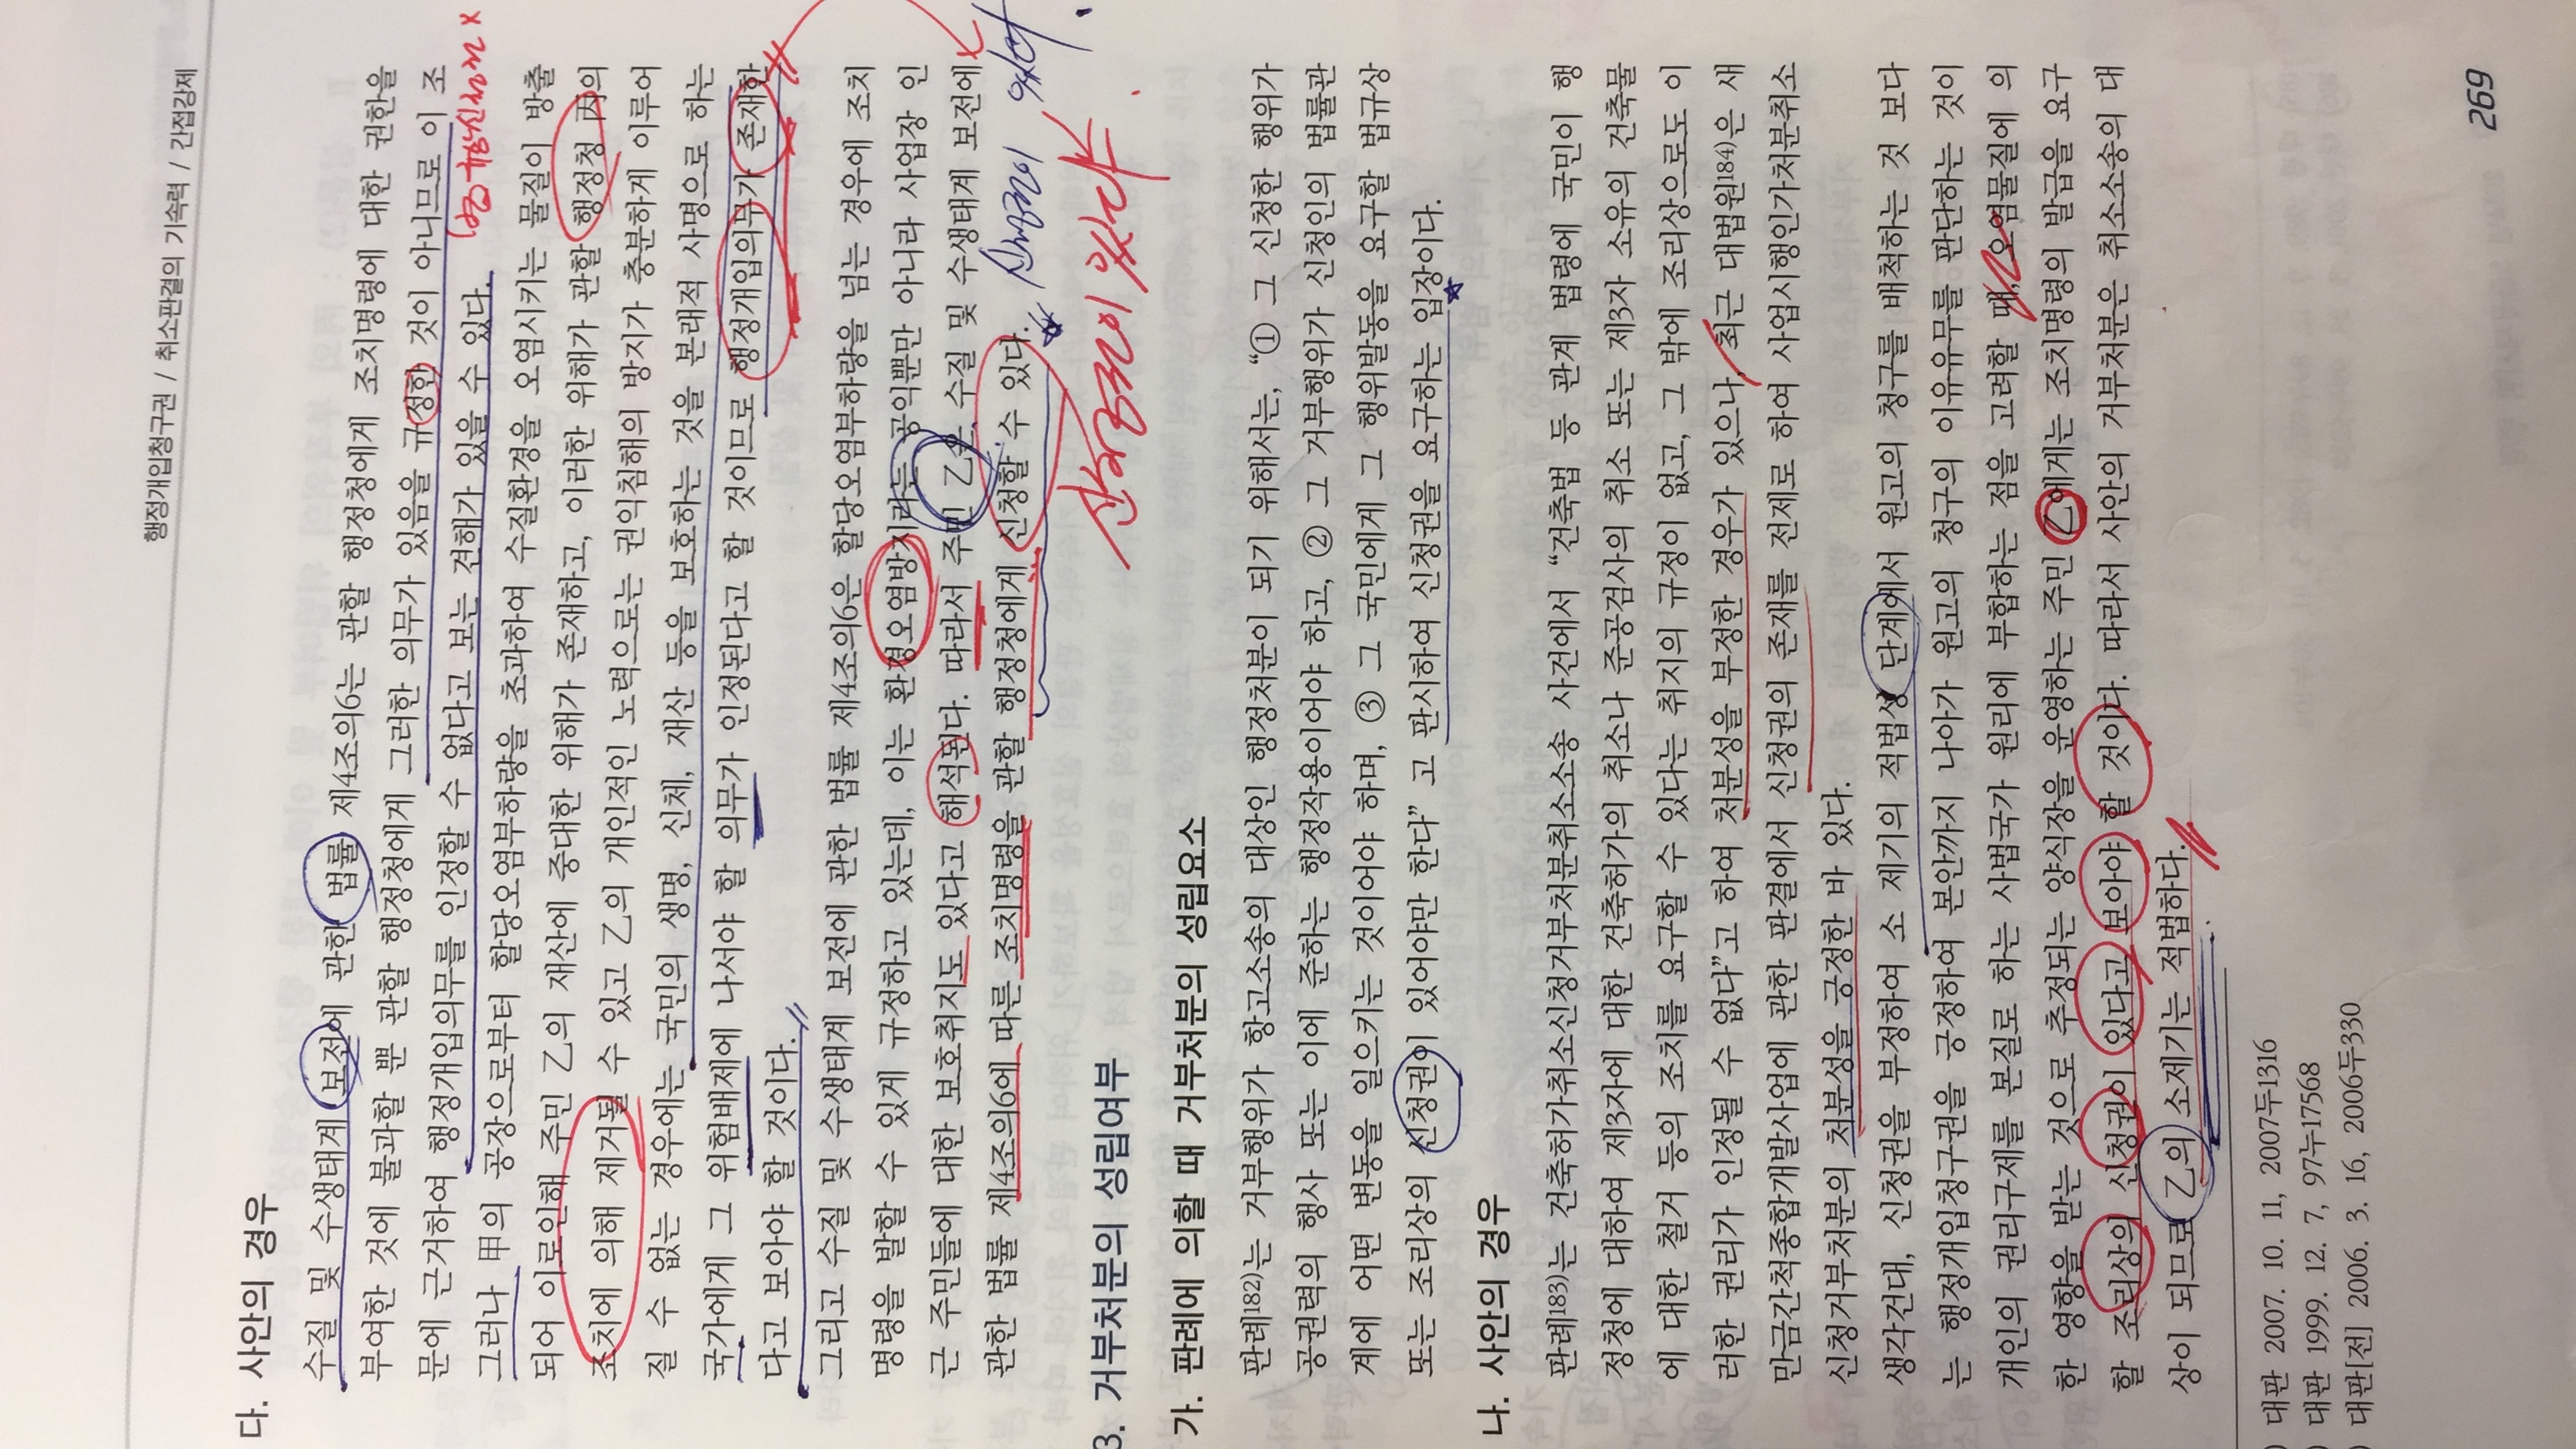 행정개입청구권 / 취소판결의 기속력 / 간접강제
다. 사안의 경우
수질 및 수생태계 보전에 관한 법률 제4조의6는 관할 행정청에게 조치명령에 대한 권한을
부여한 것에 불과할 뿐 관할 행정청에게 그러한 의무가 있음을 규정한 것이 아니므로 이 조
문에 근거하여 행정개입의무를 인정할 수 없다고 보는 견해가 있을 수 있다.
그러나 甲의 공장으로부터 할당오염부하량을 초과하여 수질환경을 오염시키는 물질이 방출
되어 이로인해 주민 乙의 재산에 중대한 위해가 존재하고, 이러한 위해가 관할 행정청 丙의
조치에 의해 제거될 수 있고 乙의 개인적인 노력으로는 권익침해의 방지가 충분하게 이루어
질 수 없는 경우에는 국민의 생명, 신체, 재산 등을 보호하는 것을 본래적 사명으로 하는
국가에게 그 위험배제에 나서야 할 의무가 인정된다고 할 것이므로 행정개입의무가 존재한
다고 보아야 할 것이다.
그리고 수질 및 수생태계 보전에 관한 법률 제4조의6은 할당오염부하량을 넘는 경우에 조치
명령을 발할 수 있게 규정하고 있는데, 이는 환경오염방지라는 공익뿐만 아니라 사업장 인
근 주민들에 대한 보호취지도 있다고 해석된다. 따라서 주민 乙은 수질 및 수생태계 보전에
관한 법률 제4조의6에 따른 조치명령을 관할 행정청에게 신청할 수 있다.
신청권이 있어.
신청권이 있다.
3. 거부처분의 성립여부
가. 판례에 의할 때 거부처분의 성립요소
판례182)는 거부행위가 항고소송의 대상인 행정처분이 되기 위해서는, “① 그 신청한 행위가
공권력의 행사 또는 이에 준하는 행정작용이어야 하고, ② 그 거부행위가 신청인의 법률관
계에 어떤 변동을 일으키는 것이어야 하며, ③ 그 국민에게 그 행위발동을 요구할 법규상
또는 조리상의 신청권이 있어야만 한다” 고 판시하여 신청권을 요구하는 입장이다.
나. 사안의 경우
판례183)는 건축허가취소신청거부처분취소소송 사건에서 “건축법 등 관계 법령에 국민이 행
정청에 대하여 제3자에 대한 건축허가의 취소나 준공검사의 취소 또는 제3자 소유의 건축물
에 대한 철거 등의 조치를 요구할 수 있다는 취지의 규정이 없고, 그 밖에 조리상으로도 이
러한 권리가 인정될 수 없다”고 하여 처분성을 부정한 경우가 있으나, 최근 대법원184)은 새
만금간척종합개발사업에 관한 판결에서 신청권의 존재를 전제로 하여 사업시행인가처분취소
신청거부처분의 처분성을 긍정한 바 있다.
생각건대, 신청권을 부정하여 소 제기의 적법성 단계에서 원고의 청구를 배척하는 것 보다
는 행정개입청구권을 긍정하여 본안까지 나아가 원고의 청구의 이유유무를 판단하는 것이
개인의 권리구제를 본질로 하는 사법국가 원리에 부합하는 점을 고려할 때, 오염물질에 의
한 영향을 받는 것으로 추정되는 양식장을 운영하는 주민 乙에게는 조치명령의 발급을 요구
할 조리상의 신청권이 있다고 보아야 할 것이다. 따라서 사안의 거부처분은 취소소송의 대
상이 되므로 乙의 소제기는 적법하다.
) 대판 2007. 10. 11, 2007두1316
) 대판 1999. 12. 7, 97누17568
) 대판[전] 2006. 3. 16, 2006두330
269